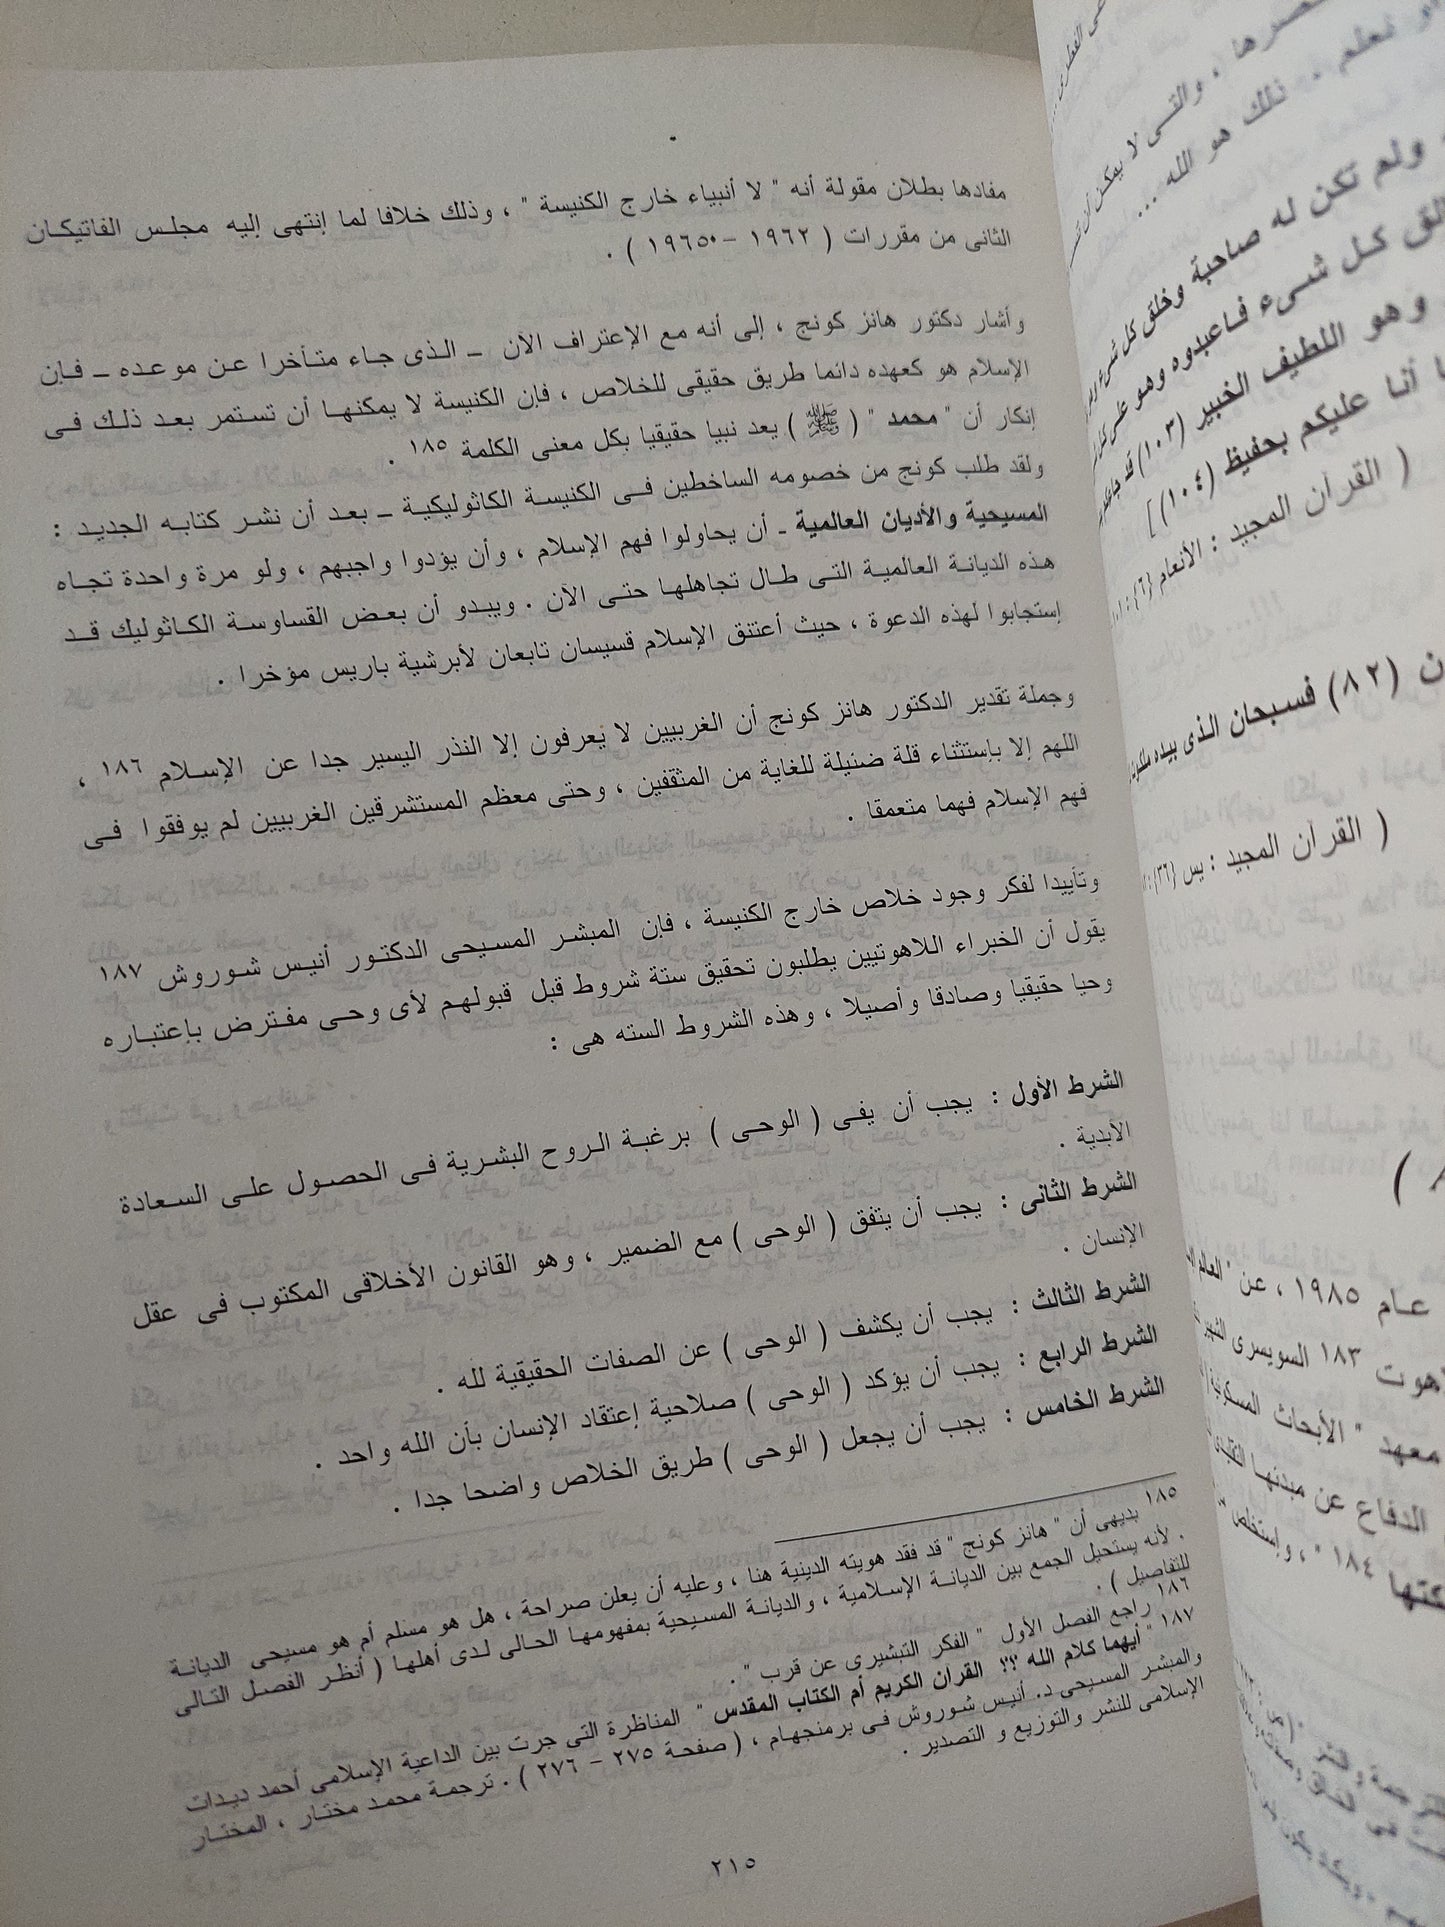 مفادها بطلان مقولة أنه " لا أنبياء خارج الكنيسة " ، وذلك خلافا لما إنتهى إليه مجلس الفاتيكان
الثانى من مقررات ( ١٩٦٢ – ١٩٦٥ ) .
وأشار دكتور هانز كونج ، إلى أنه مع الإعتراف الآن ــ الذى جاء متأخرا عن موعده ــ فإن
الإسلام هو كعهده دائما طريق حقيقى للخلاص ، فإن الكنيسة لا يمكنها أن تستمر بعد ذلك فى
إنكار أن " محمد " ( ﷺ ) يعد نبيا حقيقيا بكل معنى الكلمة ١٨٥ .
ولقد طلب كونج من خصومه الساخطين فى الكنيسة الكاثوليكية ــ بعد أن نشر كتابه الجديد :
المسيحية والأديان العالمية ـ أن يحاولوا فهم الإسلام ، وأن يؤدوا واجبهم ، ولو مرة واحدة تجاه
هذه الديانة العالمية التى طال تجاهلها حتى الآن . ويبدو أن بعض القساوسة الكاثوليك قد
إستجابوا لهذه الدعوة ، حيث أعتنق الإسلام قسيسان تابعان لأبرشية باريس مؤخرا .
وجملة تقدير الدكتور هانز كونج أن الغربيين لا يعرفون إلا النذر اليسير جدا عن الإسلام ١٨٦ ،
اللهم إلا بإستثناء قلة ضئيلة للغاية من المثقفين ، وحتى معظم المستشرقين الغربيين لم يوفقوا فى
فهم الإسلام فهما متعمقا .
وتأييدا لفكر وجود خلاص خارج الكنيسة ، فإن المبشر المسيحى الدكتور أنيس شوروش ١٨٧
يقول أن الخبراء اللاهوتيين يطلبون تحقيق ستة شروط قبل قبولهم لأى وحى مفترض بإعتباره
وحيا حقيقيا وصادقا وأصيلا ، وهذه الشروط السته هى :
الشرط الأول : يجب أن يفى ( الوحى ) برغبة الروح البشرية فى الحصول على السعادة
الأبدية .
الشرط الثانى : يجب أن يتفق ( الوحى ) مع الضمير ، وهو القانون الأخلاقى المكتوب فى عقل
الإنسان .
الشرط الثالث : يجب أن يكشف ( الوحى ) عن الصفات الحقيقية لله .
الشرط الرابع : يجب أن يؤكد ( الوحى ) صلاحية إعتقاد الإنسان بأن الله واحد .
الشرط الخامس : يجب أن يجعل ( الوحى ) طريق الخلاص واضحا جدا .
١٨٥ بديهى أن " هانز كونج " قد فقد هويته الدينية هنا ، وعليه أن يعلن صراحة ، هل هو مسلم أم هو مسيحى الديانة
. لأنه يستحيل الجمع بين الديانة الإسلامية ، والديانة المسيحية بمفهومها الحالى لدى أهلها ( أنظر الفصل التالى
للتفاصيل ) .
١٨٦ راجع الفصل الأول " الفكر التبشيرى عن قرب " .
١٨٧ " أيهما كلام الله ؟؟ القرآن الكريم أم الكتاب المقدس " المناظرة التى جرت بين الداعية الإسلامى أحمد ديدات
والمبشر المسيحى د. أنيس شوروش فى برمنجهام ، ( صفحة ٢٧٥ – ٢٧٦ ) . ترجمة محمد مختار ، المختار
الإسلامى للنشر والتوزيع و التصدير .
٢١٥
والتى لا يمكن أن
نعلم . ذلك هو الله ...
ولم تكن له صاحبة وخلق كل شىء
كل شىء فاعبدوه وهو على كل
وهو اللطيف الخبير (١٠٣) قد جاءكم
أنا عليكم بحفيظ (١٠٤) ]
( القرآن المجيد : الأنعام {٦} :
(٨٢) فسبحان الذى بيده ملكوت
( القرآن المجيد : يس {٣٦} :
عام ١٩٨٥ ، عن " العالم
١٨٣ السويسرى الشهير
معهد " الأبحاث المسكونية
الدفاع عن
١٨٤ " ، وإستخلص